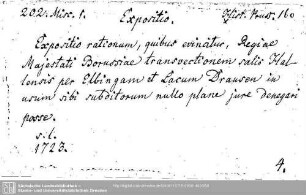 202. Misc. 1. Expositio. Hist. Pruss. 160
Expositio rationum, quibus evincitur, Regiae
Majestati Borussiae transvectionem salis Hal-
lensis per Elbingam et Lacum Drausen in
usum sibi subditorum nullo plane jure denegari
posse.
s. l.
1723.
4.